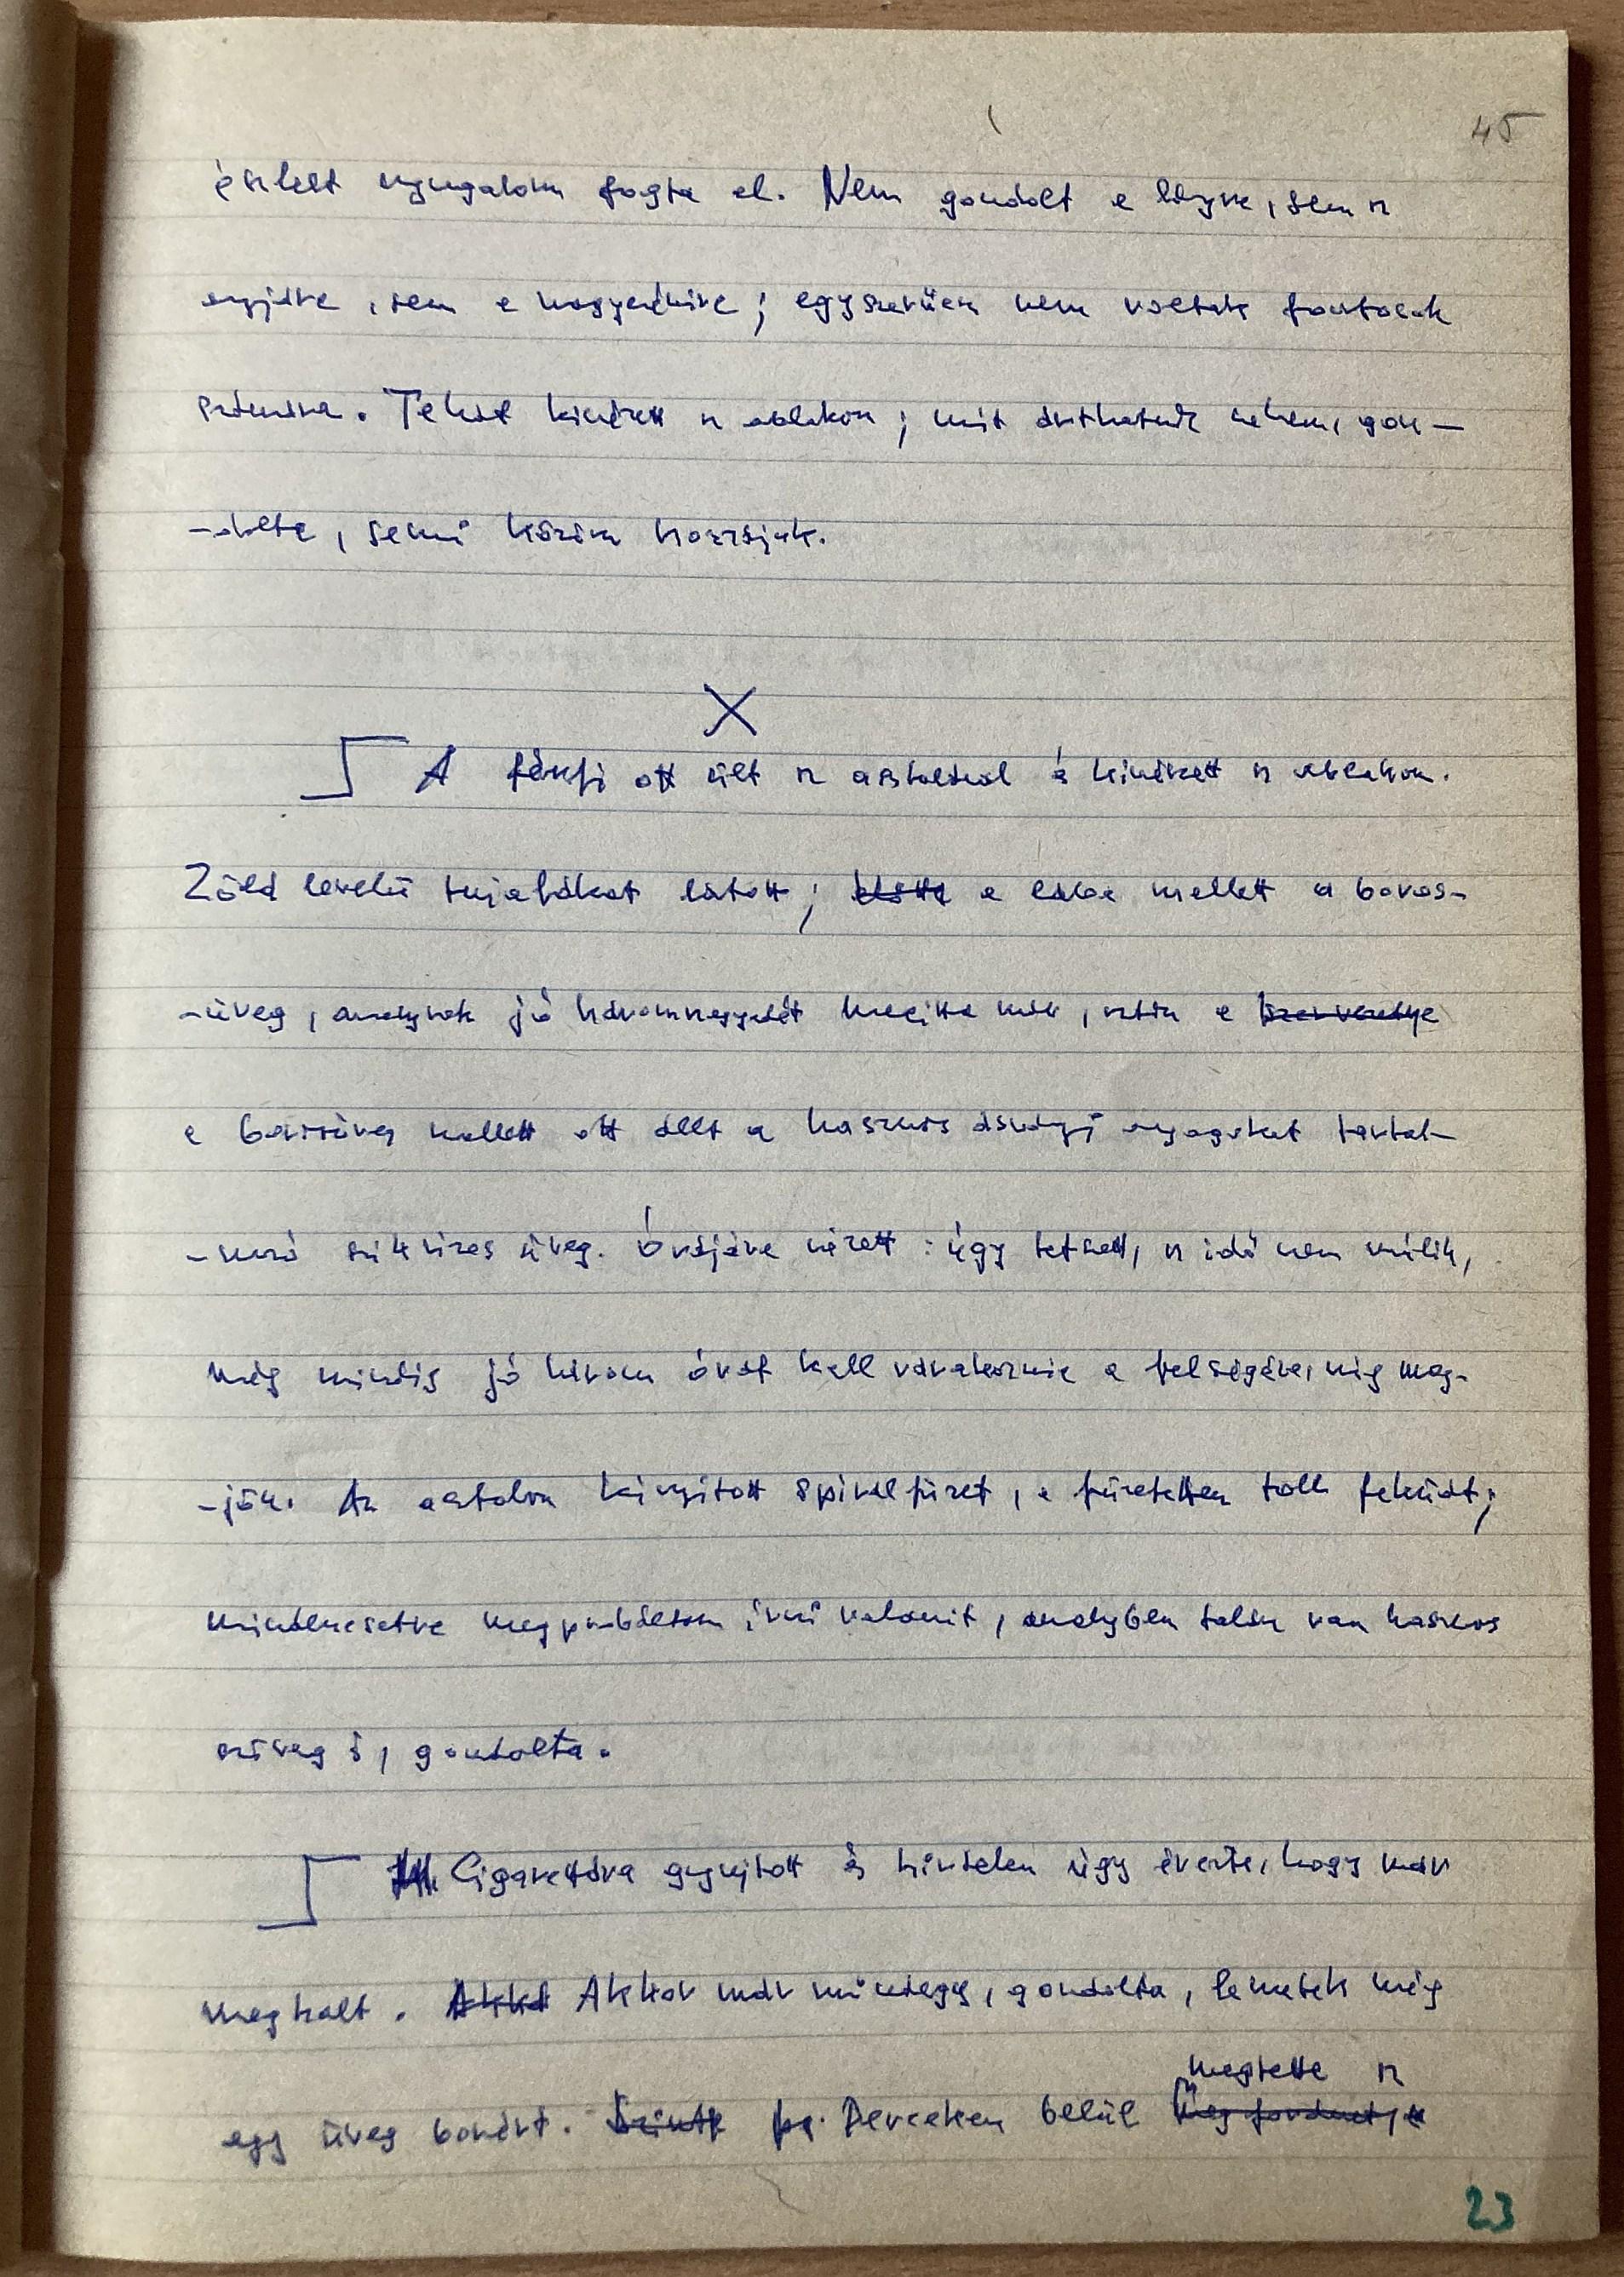 45
észlelt nyugalom fogta el. Nem gondolt a lányra, sem az
anyjára, sem a nagyanyára; egyszerűen nem voltak fontosak
számára. Tehát kinézett az ablakon; mit árthatnak nekem, gon-
-dolta, semmi közöm hozzájuk.
X
A férfi ott ült az asztalnál és kinézett az ablakon.
Zöld levelű tujafákat látott; a lába mellett a boros-
-üveg, amelynek jó háromnegyedét megitta már, aztán a
a borosüveg mellett ott állt a hasznos ásványi anyagokat tartal-
-mazó szikvizes üveg. Órájára nézett: úgy tetszett, az idő nem múlik,
még mindig jó három órát kell várakoznia a feleségére, míg meg-
-jön. Az asztalon kinyitott spirálfüzet, a füzetben toll feküdt;
mindenesetre megpróbáltam írni valamit, amelyben talán van hasznos
szöveg is, gondolta.
Cigarettára gyújtott és hirtelen úgy érezte, hogy már
meghalt. Akkor már mindegy, gondolta, lemegyek még
megtette az
egy üveg borért. Perceken belül
23